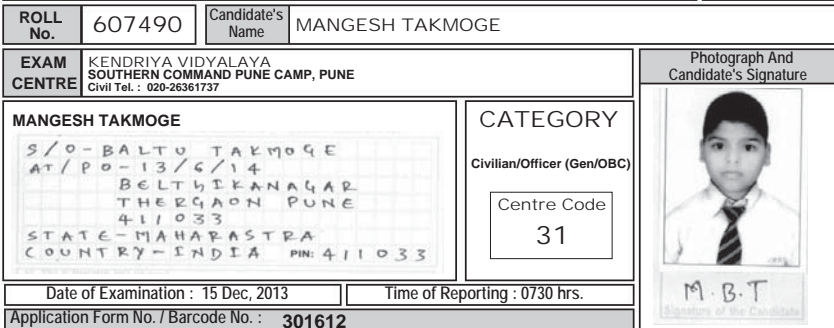 ROLL No. 607490 Candidate's Name MANGESH TAKMOGE
EXAM CENTRE KENDRIYA VIDYALAYA
SOUTHERN COMMAND PUNE CAMP, PUNE
Civil Tel. : 020-26361737
Photograph And
Candidate's Signature
MANGESH TAKMOGE
S/O-BALTU TAKMOGE
AT/PO-13/6/14
BELTHIKANAGAR
THERGAON PUNE
411033
STATE-MAHARASTRA
COUNTRY-INDIA PIN: 411033
CATEGORY
Civilian/Officer (Gen/OBC)
Centre Code
31
M.B.T
Signature of the Candidate
Date of Examination : 15 Dec, 2013 Time of Reporting : 0730 hrs.
Application Form No. / Barcode No. : 301612